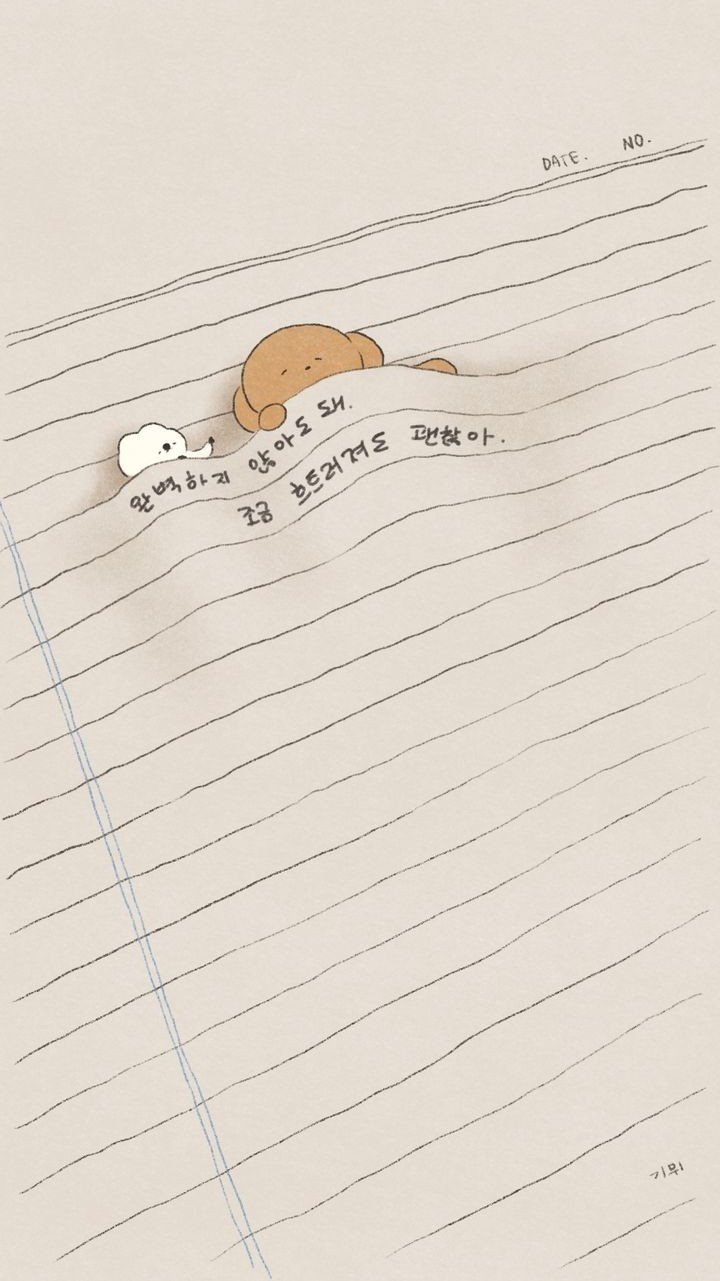 DATE. NO.
완벽하지 않아도 돼.
조금 흐트러져도 괜찮아.
기뮈